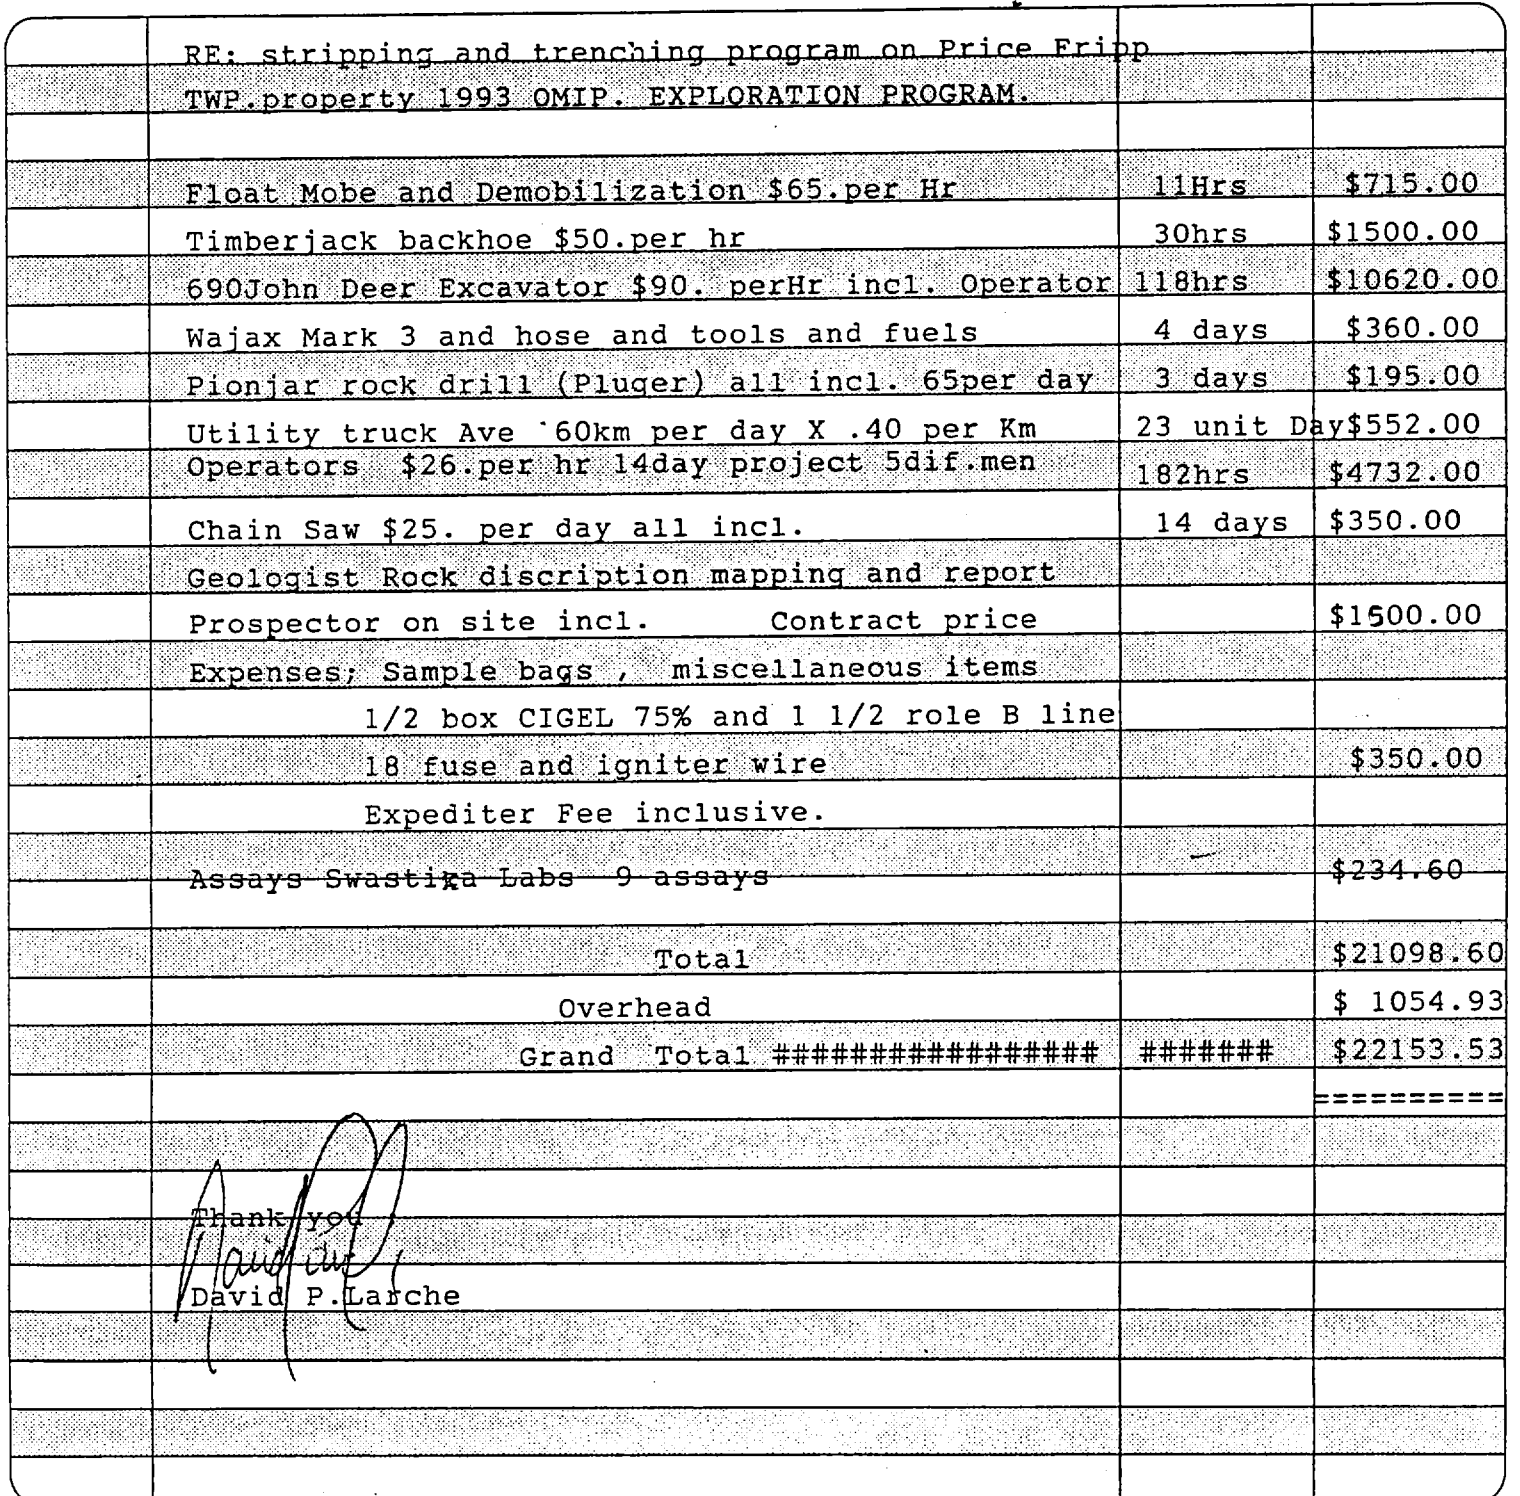 RE: stripping and trenching program on Price Fripp
TWP.property 1993 OMIP. EXPLORATION PROGRAM.
Float Mobe and Demobilization $65.per Hr 11Hrs $715.00
Timberjack backhoe $50.per hr 30hrs $1500.00
690John Deer Excavator $90. perHr incl. Operator 118hrs $10620.00
Wajax Mark 3 and hose and tools and fuels 4 days $360.00
Pionjar rock drill (Pluger) all incl. 65per day 3 days $195.00
Utility truck Ave 60km per day X .40 per Km 23 unit Day$552.00
Operators $26.per hr 14day project 5dif.men 182hrs $4732.00
Chain Saw $25. per day all incl. 14 days $350.00
Geologist Rock discription mapping and report
Prospector on site incl. Contract price $1500.00
Expenses; Sample bags , miscellaneous items
1/2 box CIGEL 75% and 1 1/2 role B line
18 fuse and igniter wire $350.00
Expediter Fee inclusive.
Assays Swastika Labs 9 assays $234.60
Total $21098.60
Overhead $ 1054.93
Grand Total ################# ####### $22153.53
==========
Thank you
David P.Larche